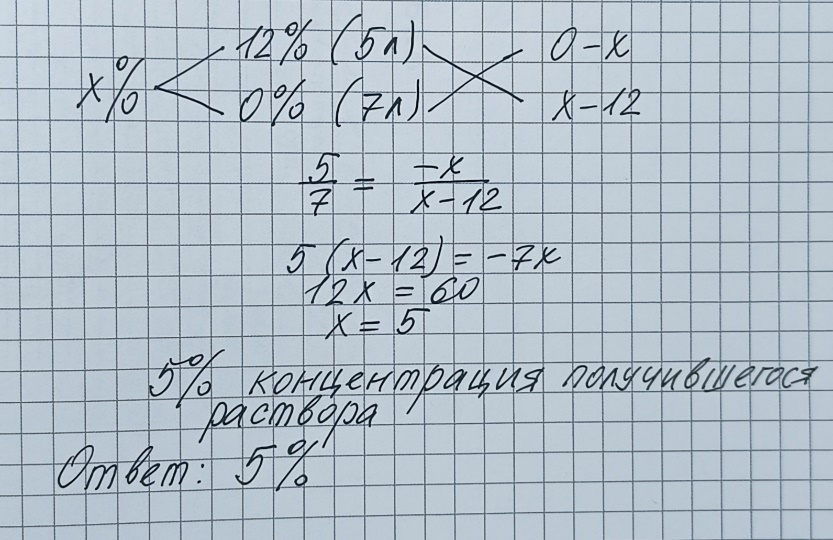 12% (5л) 0-x
x%
0% (7л) x-12
5/7 = -x/x-12
5(x-12) = -7x
12x = 60
x = 5
5% концентрация получившегося
раствора
Ответ: 5%